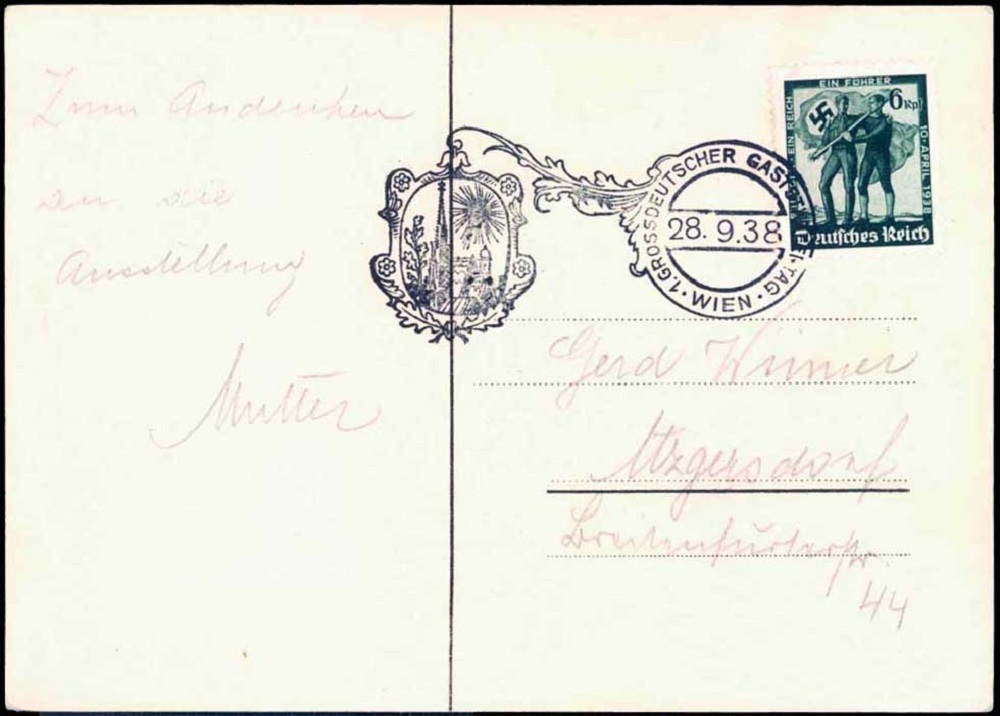 Zum Andenken
an die
Ausstellung
Mutter
EIN REICH EIN FÜHRER 10. APRIL 1938
6 Rpf
Deutsches Reich
1. GROSSDEUTSCHER TAG
28. 9.38
WIEN
Gerd
Atzgersdorf
Breitenfurterstr.
44